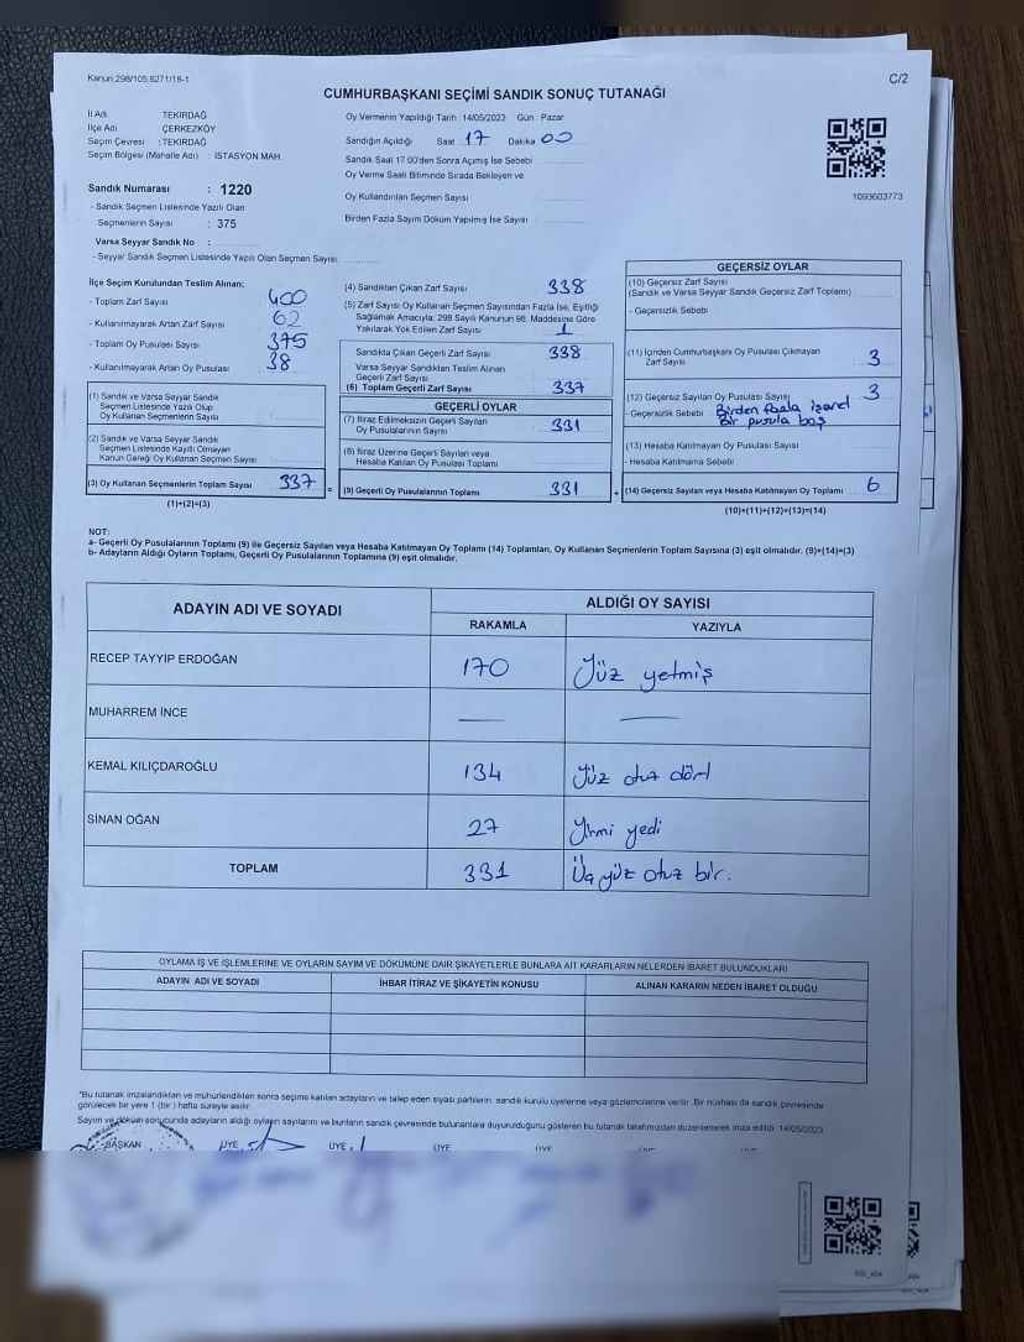 Kanun 298/105,8271/18-1
C/2
CUMHURBAŞKANI SEÇİMİ SANDIK SONUÇ TUTANAĞI
İl Adı TEKİRDAĞ
İlçe Adı ÇERKEZKÖY
Seçim Çevresi : TEKİRDAĞ
Seçim Bölgesi (Mahalle Adı) : İSTASYON MAH.
Sandık Numarası : 1220
- Sandık Seçmen Listesinde Yazılı Olan
Seçmenlerin Sayısı : 375
Varsa Seyyar Sandık No :
- Seyyar Sandık Seçmen Listesinde Yazılı Olan Seçmen Sayısı
Oy Vermenin Yapıldığı Tarih 14/05/2023 Gün Pazar
Sandığın Açıldığı Saat 17 Dakika 00
Sandık Saat 17.00'den Sonra Açılmış İse Sebebi
Oy Verme Saati Bitiminde Sırada Bekleyen ve
Oy Kullandırılan Seçmen Sayısı
Birden Fazla Sayım Döküm Yapılmış İse Sayısı
1093603773
İlçe Seçim Kurulundan Teslim Alınan;
- Toplam Zarf Sayısı 400
- Kullanılmayarak Artan Zarf Sayısı 62
- Toplam Oy Pusulası Sayısı 375
- Kullanılmayarak Artan Oy Pusulası 38
(1) Sandık ve Varsa Seyyar Sandık
Seçmen Listesinde Yazılı Olup
Oy Kullanan Seçmenlerin Sayısı
(2) Sandık ve Varsa Seyyar Sandık
Seçmen Listesinde Kayıtlı Olmayan
Kanun Gereği Oy Kullanan Seçmen Sayısı
(3) Oy Kullanan Seçmenlerin Toplam Sayısı 337
(1)+(2)=(3)
(4) Sandıktan Çıkan Zarf Sayısı 338
(5) Zarf Sayısı Oy Kullanan Seçmen Sayısından Fazla İse, Eşitliği
Sağlamak Amacıyla, 298 Sayılı Kanunun 98. Maddesine Göre
Yakılarak Yok Edilen Zarf Sayısı 1
Sandıkta Çıkan Geçerli Zarf Sayısı 338
Varsa Seyyar Sandıktan Teslim Alınan
Geçerli Zarf Sayısı
(6) Toplam Geçerli Zarf Sayısı 337
GEÇERLİ OYLAR
(7) İtiraz Edilmeksizin Geçerli Sayılan
Oy Pusulalarının Sayısı 331
(8) İtiraz Üzerine Geçerli Sayılan veya
Hesaba Katılan Oy Pusulası Toplamı
= (9) Geçerli Oy Pusulalarının Toplamı 331
GEÇERSİZ OYLAR
(10) Geçersiz Zarf Sayısı
(Sandık ve Varsa Seyyar Sandık Geçersiz Zarf Toplamı)
- Geçersizlik Sebebi
(11) İçinden Cumhurbaşkanı Oy Pusulası Çıkmayan
Zarf Sayısı 3
(12) Geçersiz Sayılan Oy Pusulası Sayısı 3
- Geçersizlik Sebebi Birden fazla işaret
Bir pusula boş
(13) Hesaba Katılmayan Oy Pusulası Sayısı
- Hesaba Katılmama Sebebi
+ (14) Geçersiz Sayılan veya Hesaba Katılmayan Oy Toplamı 6
(10)+(11)+(12)+(13)=(14)
NOT:
a- Geçerli Oy Pusulalarının Toplamı (9) ile Geçersiz Sayılan veya Hesaba Katılmayan Oy Toplamı (14) Toplamları, Oy Kullanan Seçmenlerin Toplam Sayısına (3) eşit olmalıdır. (9)+(14)=(3)
b- Adayların Aldığı Oyların Toplamı, Geçerli Oy Pusulalarının Toplamına (9) eşit olmalıdır.
ADAYIN ADI VE SOYADI
ALDIĞI OY SAYISI
RAKAMLA YAZIYLA
RECEP TAYYİP ERDOĞAN 170 Yüz yetmiş
MUHARREM İNCE — —
KEMAL KILIÇDAROĞLU 134 Yüz otuz dört
SİNAN OĞAN 27 Yirmi yedi
TOPLAM 331 Üç yüz otuz bir.
OYLAMA İŞ VE İŞLEMLERİNE VE OYLARIN SAYIM VE DÖKÜMÜNE DAİR ŞİKAYETLERLE BUNLARA AİT KARARLARIN NELERDEN İBARET BULUNDUKLARI
ADAYIN ADI VE SOYADI İHBAR İTİRAZ VE ŞİKAYETİN KONUSU ALINAN KARARIN NEDEN İBARET OLDUĞU
*Bu tutanak imzalandıktan ve mühürlendikten sonra seçime katılan adayların ve talep eden siyasi partilerin, sandık kurulu üyelerine veya gözlemcilerine verilir. Bir nüshası da sandık çevresinde
görülecek bir yere 1 (bir) hafta süreyle asılır.
Sayım ve döküm sonucunda adayların aldığı oyların sayılarını ve bunların sandık çevresinde bulunanlara duyurulduğunu gösteren bu tutanak tarafımızdan düzenlenerek imza edildi. 14/05/2023
BAŞKAN ÜYE ÜYE ÜYE ÜYE